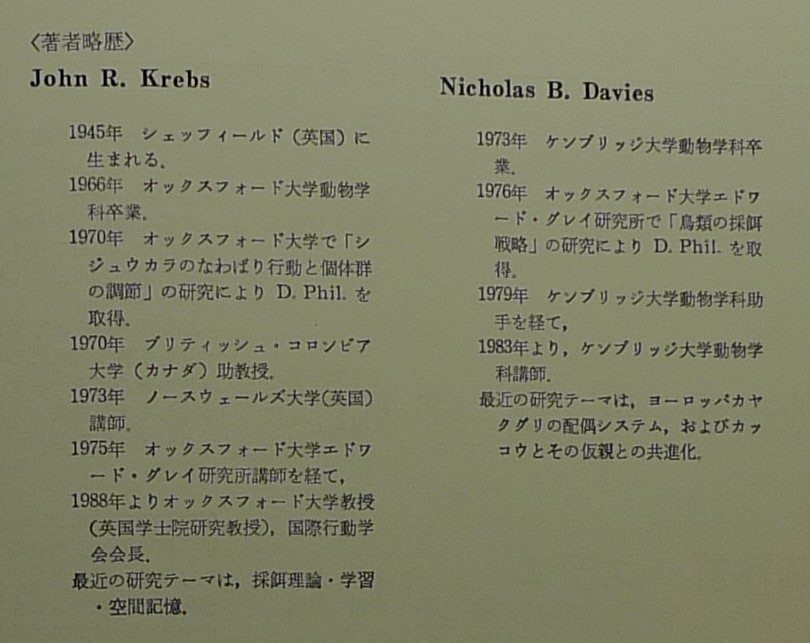 〈著者略歴〉
John R. Krebs
1945年 シェッフィールド（英国）に
生まれる．
1966年 オックスフォード大学動物学
科卒業．
1970年 オックスフォード大学で「シ
ジュウカラのなわばり行動と個体群
の調節」の研究により D. Phil. を
取得．
1970年 ブリティッシュ・コロンビア
大学（カナダ）助教授．
1973年 ノースウェールズ大学(英国)
講師．
1975年 オックスフォード大学エドワ
ード・グレイ研究所講師を経て，
1988年よりオックスフォード大学教授
（英国学士院研究教授），国際行動学
会会長．
最近の研究テーマは，採餌理論・学習
・空間記憶．
Nicholas B. Davies
1973年 ケンブリッジ大学動物学科卒
業．
1976年 オックスフォード大学エドワ
ード・グレイ研究所で「鳥類の採餌
戦略」の研究により D. Phil. を取
得．
1979年 ケンブリッジ大学動物学科助
手を経て，
1983年より，ケンブリッジ大学動物学
科講師．
最近の研究テーマは，ヨーロッパカヤ
クグリの配偶システム，およびカッ
コウとその仮親との共進化．